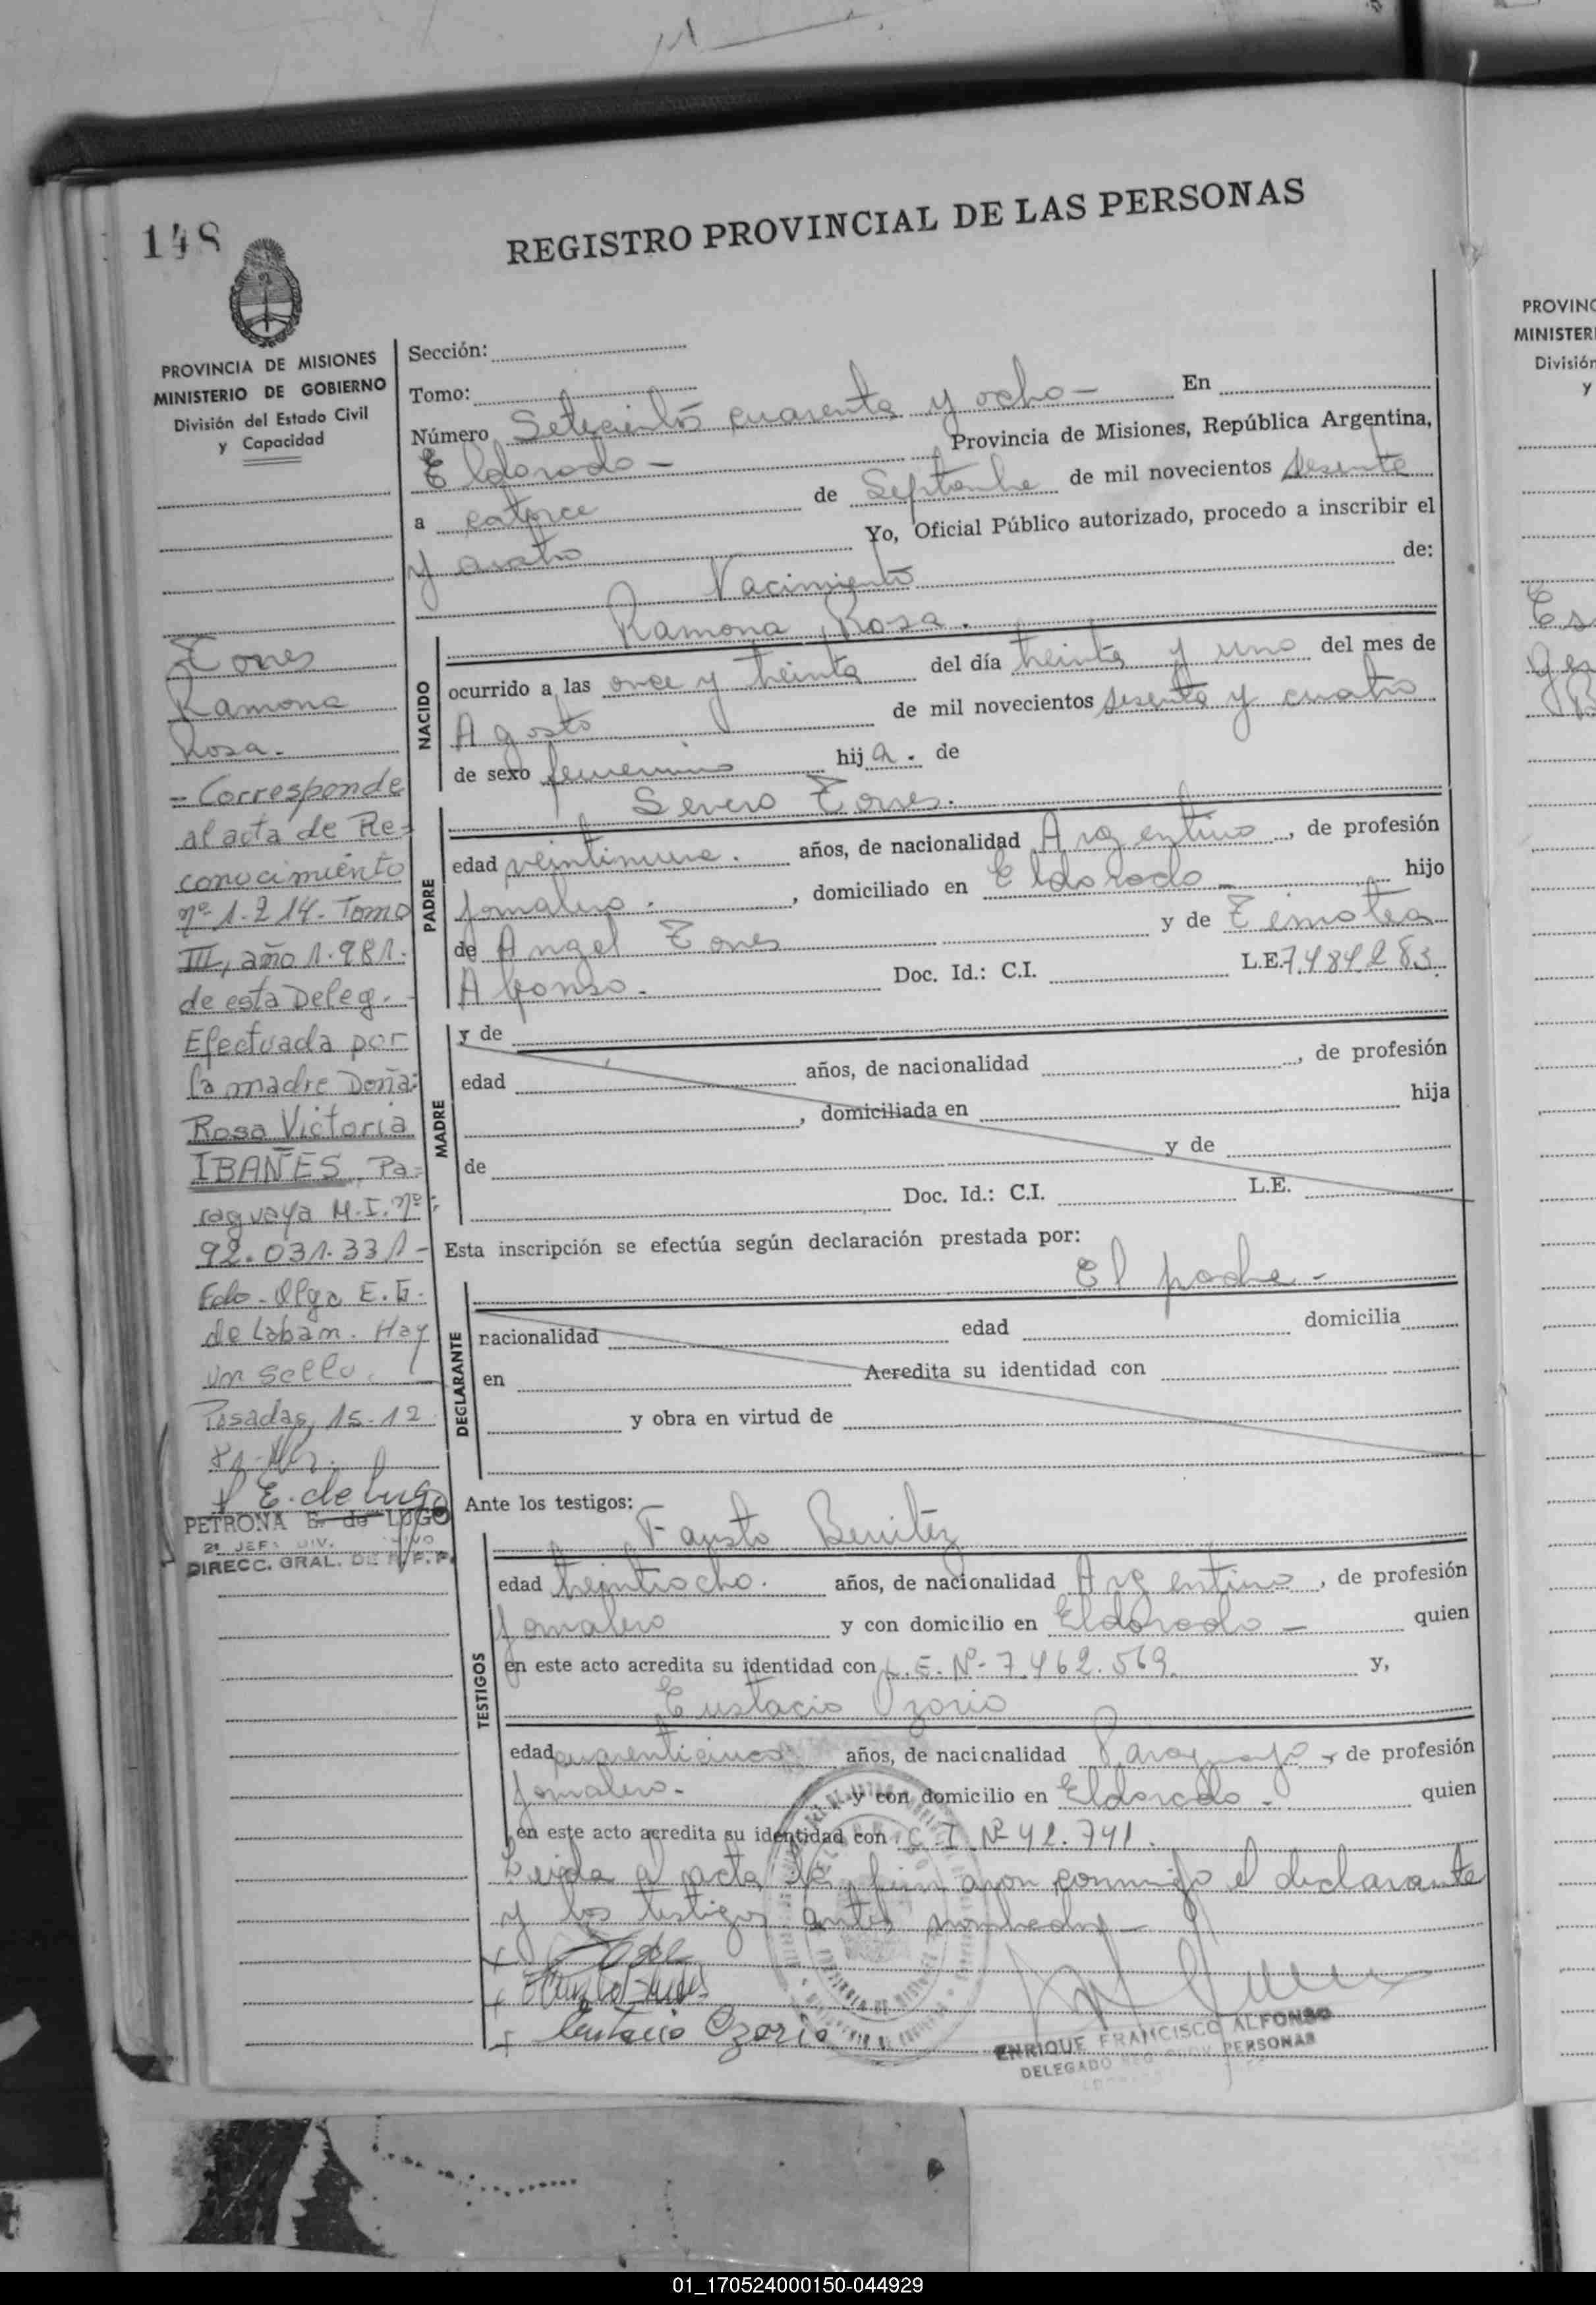 148
REGISTRO PROVINCIAL DE LAS PERSONAS
PROVINCIA DE MISIONES
MINISTERIO DE GOBIERNO
División del Estado Civil
y Capacidad
Torres
Ramona
Rosa.
= Corresponde
al acta de Re=
conocimiento
nº 1.214. Tomo
III, año 1.981.
de esta Deleg.
Efectuada por
la madre Doña:
Rosa Victoria
IBAÑES, Pa=
raguaya M.I. nº
92.031.331-
Fdo. Olga E. G.
de Labam. Hay
un sello.
Posadas, 15-12
81
E. de Lugo
PETRONA E. de LUGO
2ª JEFE DIV.
DIRECC. GRAL. DE R. P. P.
Sección:
Tomo:
Número Setecientos cuarenta y ocho - En
Eldorado - Provincia de Misiones, República Argentina,
a catorce de Septiembre de mil novecientos sesenta
y cuatro Yo, Oficial Público autorizado, procedo a inscribir el
Nacimiento de:
Ramona Rosa.
NACIDO
ocurrido a las once y treinta del día treinta y uno del mes de
Agosto de mil novecientos sesenta y cuatro
de sexo femenino hij a. de
Severo Torres.
PADRE
edad veintinueve. años, de nacionalidad Argentino, de profesión
jornalero. , domiciliado en Eldorado - hijo
de Angel Torres y de Timotea
Afonso. Doc. Id.: C.I. L.E. 7484283.
MADRE
y de
edad años, de nacionalidad , de profesión
, domiciliada en hija
de y de
Doc. Id.: C.I. L.E.
Esta inscripción se efectúa según declaración prestada por:
El padre -
DEGLARANTE
nacionalidad edad domicilia
en Acredita su identidad con
y obra en virtud de
Ante los testigos:
Fausto Benitez
TESTIGOS
edad treintiocho. años, de nacionalidad Argentino, de profesión
jornalero y con domicilio en Eldorado - quien
en este acto acredita su identidad con L.E. Nº- 7.462.569. y,
Eustacio Ozorio
edad cuarenticinco años, de nacionalidad Paraguayo, de profesión
jornalero- y con domicilio en Eldorado - quien
en este acto acredita su identidad con C.I. Nº 42.741.
Leida el acta, la firmaron conmigo el declarante
y los testigos antes nombrados -
Eustacio Ozorio
ENRIQUE FRANCISCO ALFONSO
DELEGADO REG. PERSONAS
PROVINC
MINISTER
División
y
01_170524000150-044929